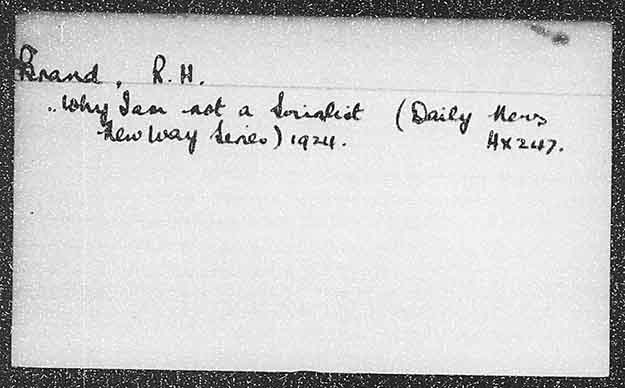 Brand, R. H.
.. Why I am not a Socialist (Daily News
New Way Series) 1924.
HX247.